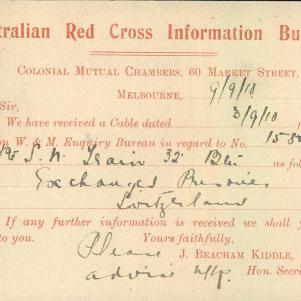 tralian Red Cross Information Bu
Colonial Mutual Chambers, 60 Market Street,
Melbourne, 9/9/18
Sir,
We have received a Cable dated 3/9/18
on W. & M. Enquiry Bureau in regard to No. 158
Pte 32 Btn as fo
Exchanged Prisoner
Switzerland
If any further information is received we shall
to you. Yours faithfully,
Please J. Beacham Kiddle,
advise Hon. Secre